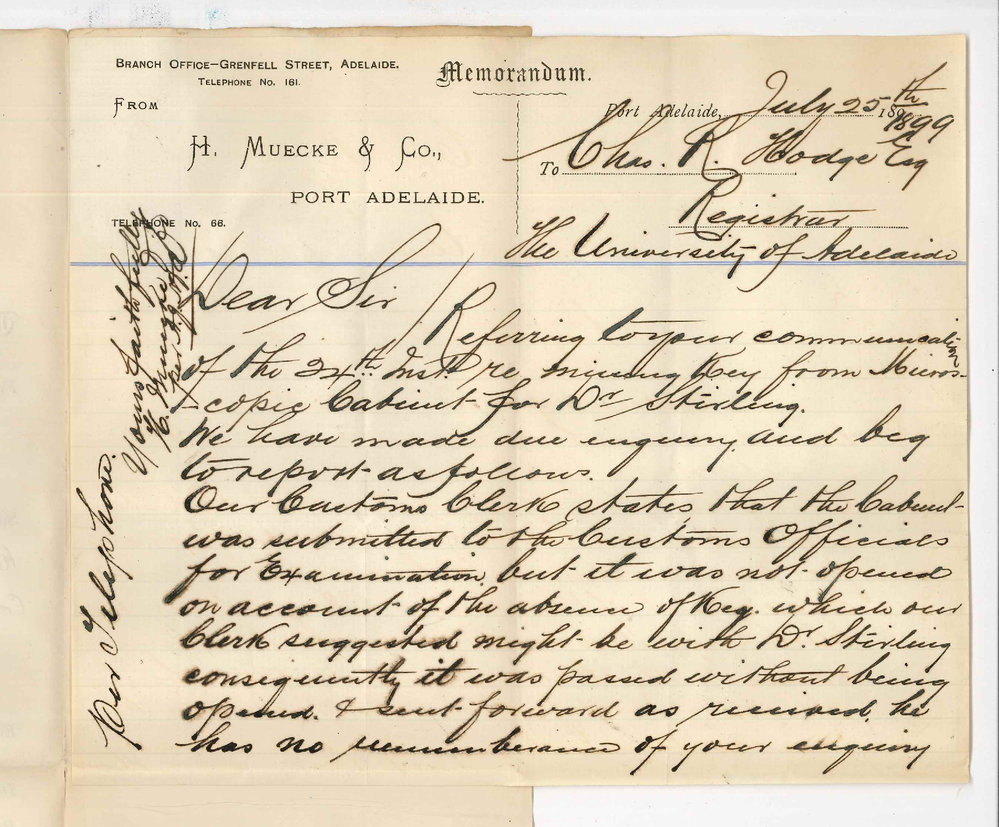 BRANCH OFFICE—GRENFELL STREET, ADELAIDE.
TELEPHONE NO. 161.
Memorandum.
FROM
H. MUECKE & CO.,
PORT ADELAIDE.
TELEPHONE No. 66.
Port Adelaide, July 25th 189
1899
To Chas. R. Hodge Esq
Registrar
The University of Adelaide
Dear Sir
Referring to your communication
of the 24th Inst. re missing Key from Micros-
-copic Cabinet for Dr Stirling.
We have made due enquiry and beg
to report as follows.
Our Customs Clerk states that the Cabinet
was submitted to the Customs Officials
for Examination, but it was not opened
on account of the absence of Key. which our
Clerk suggested might be with Dr Stirling
consequently it was passed without being
opened. & sent forward as received, he
has no rememberance of your enquiry
per Telephone.
Yours faithfully
H. Muecke & Co
per